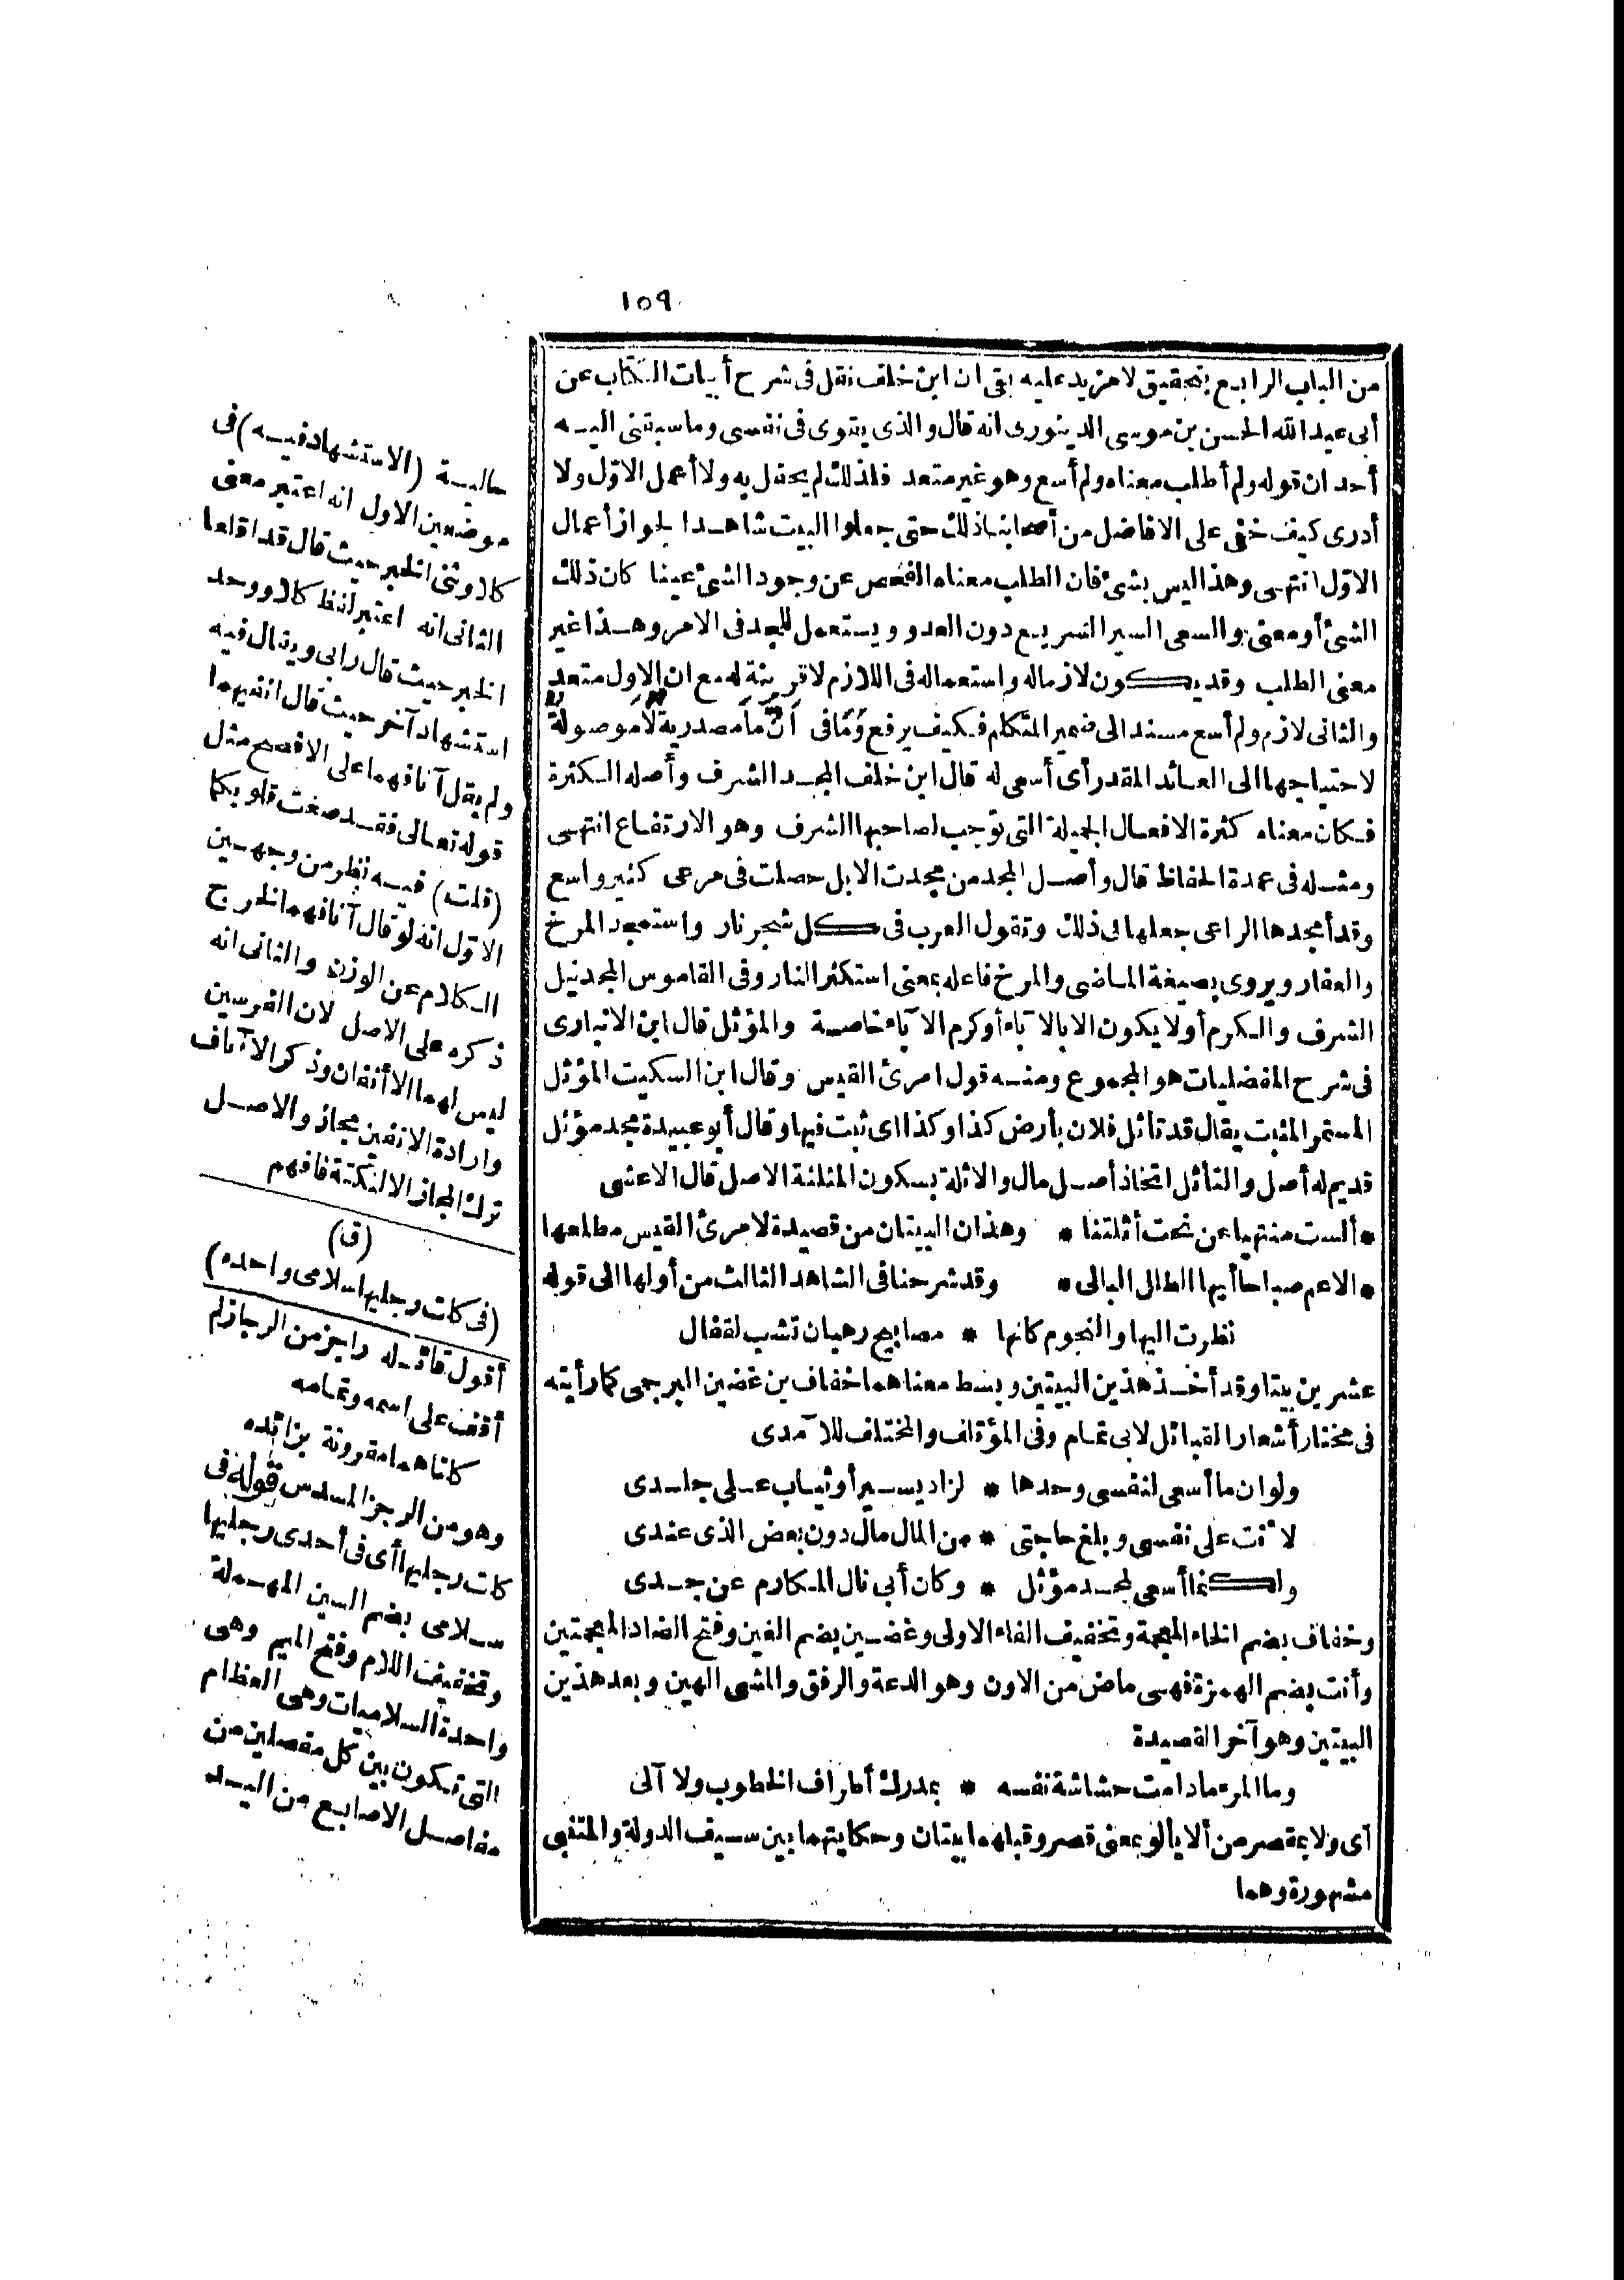 ١٥٩
من الباب الرابع بتحقيق لا مزيد عليه بقى ان ابن خلف نقل فى شرح أبيات الكتاب عن
أبى عبد الله الحسن بن موسى الدينورى انه قال والذى يقوى فى نفسى وما سبقنى اليه
أحد ان قوله ولم أطلب معناه ولم أسع وهو غير متعد فلذلك لم يحفل به ولا أعمل الاوّل ولا
أدرى كيف خفى على الافاضل من أصحابنا ذلك حتى جعلوا البيت شاهدا لجواز أعمال
الاوّل انتهى وهذا ليس بشئ فان الطلب معناه الفحص عن وجود الشئ عينا كان ذلك
الشئ أو معنى والسعى السير السريع دون العدو ويستعمل للجد فى الامر وهذا غير
معنى الطلب وقد يكون لازما له واستعماله فى اللازم لا قرينة له مع ان الاول متعد
والثانى لازم ولم أسع مسند الى ضمير المتكلم فكيف يرفع وَمَا فى أنّ ما مصدرية لا موصولة
لاحتياجها الى العائد المقدر أى أسعى له قال ابن خلف المجد الشرف وأصله الكثرة
فكان معناه كثرة الافعال الجميلة التى توجب لصاحبها الشرف وهو الارتفاع انتهى
ومثله فى عمدة الحفاظ قال وأصل المجد من مجدت الابل حصلت فى مرعى كثير واسع
وقد أمجدها الراعى جعلها فى ذلك وتقول العرب فى كل شجر نار واستمجد المرخ
والعفار ويروى بصيغة الماضى والمرخ فاعله بمعنى استكثر النار وفى القاموس المجد نيل
الشرف والكرم أو لا يكون الا بالآباء أو كرم الآباء خاصة والمؤثل قال ابن الانبارى
فى شرح المفضليات هو المجموع ومنه قول امرئ القيس وقال ابن السكيت المؤثل
المستمر المثبت يقال قد تأثل فلان بأرض كذا وكذا اى ثبت فيها وقال أبو عبيدة مجد مؤثل
قديم له أصل والتأثل اتخاذ أصل مال والاثلة بسكون المثلثة الاصل قال الاعشى
* ألست منتهيا عن نحت أثلتنا * وهذان البيتان من قصيدة لامرئ القيس مطلعها
* الا عم صباحا أيها الطلل البالى * وقد شرحنا فى الشاهد الثالث من أولها الى قوله
نظرت اليها والنجوم كانها * مصابيح رهبان تشب لقفال
عشرين بيتا وقد أخذ هذين البيتين وبسط معناهما خفاف بن غضين البرجمى كما رأيته
فى مختار أشعار القبائل لابى تمام وفى المؤتلف والمختلف للآمدى
ولو ان ما أسعى لنفسى وحدها * لزاد يسير أو ثياب على جلدى
لأنت على نفسى وبلغ حاجتى * من المال مال دون بعض الذى عندى
ولكنما أسعى لمجد مؤثل * وكان أبى نال المكارم عن جدى
وخفاف بضم الخاء المعجمة وتخفيف الفاء الاولى وغضين بضم الغين وفتح الضاد المعجمتين
وأنت بضم الهمزة فهى ماض من الاون وهو الدعة والرفق والمشى الهين وبعد هذين
البيتين وهو آخر القصيدة
وما المرء ما دامت حشاشة نفسه * بمدرك أطراف الخطوب ولا آلى
أى ولا بمقصر من ألا يألو بمعنى قصر وقبلهما بيتان وحكايتهما بين سيف الدولة والمتنبى
مشهورة وهما
حالية (الاستشهاد فيه) فى
موضعين الاول انه اعتبر معنى
كلا وثنى الخبر حيث قال قد اقلعا
الثانى انه اعتبر لفظ كلا ووحد
الخبر حيث قال رابى ويقال فيه
استشهاد آخر حيث قال انفيهما
ولم يقل آنافهما على الافصح مثل
قوله تعالى فقد صغت قلوبكما
(قلت) فيه نظر من وجهين
الاوّل انه لو قال آنافهما لخرج
الكلام عن الوزن والثانى انه
ذكره على الاصل لان الفرسين
ليس لهما الا أنفان وذكر الآناف
وارادة الانفين مجاز والاصل
ترك المجاز الا لنكتة فافهم
(ق)
(فى كلت رجليها سلامى واحده)
أقول قائله راجز من الرجاز لم
أقف على اسمه وتمامه
كلتاهما مقرونة بزائده
وهو من الرجز المسدس قوله فى
كلت رجليها أى فى أحدى رجليها
سلامى بضم السين المهملة
وتخفيف اللام وفتح الميم وهى
واحدة السلاميات وهى العظام
التى تكون بين كل مفصلين من
مفاصل الاصابع من اليد